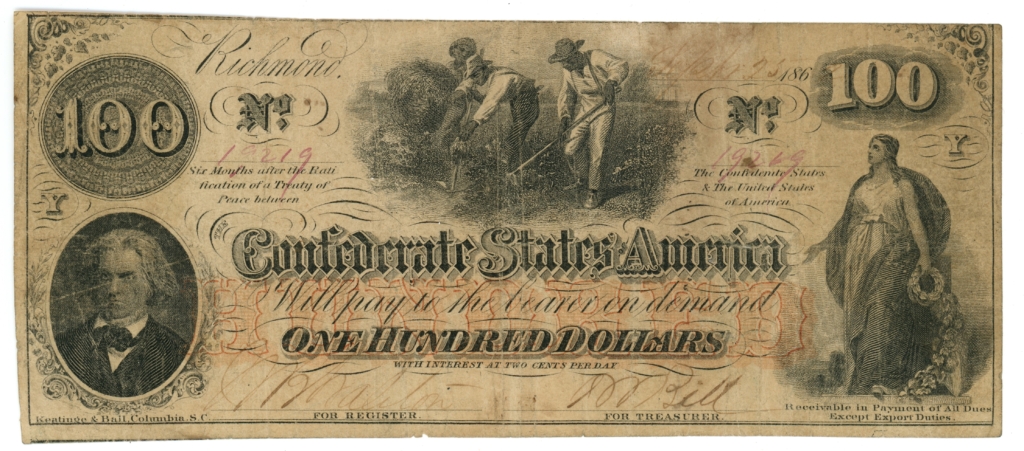 Richmond. 186
100
100
No.
No.
19219
19219
Six Months after the Rati
fication of a Treaty of
Peace between
The Confederate States
& The United States
of America
Y
Y
THE
Confederate States America
Will pay to the bearer on demand
HUNDRED
ONE HUNDRED DOLLARS
WITH INTEREST AT TWO CENTS PER DAY
FOR REGISTER.
FOR TREASURER.
Keatinge & Ball, Columbia, S.C.
Receivable in Payment of All Dues
Except Export Duties.